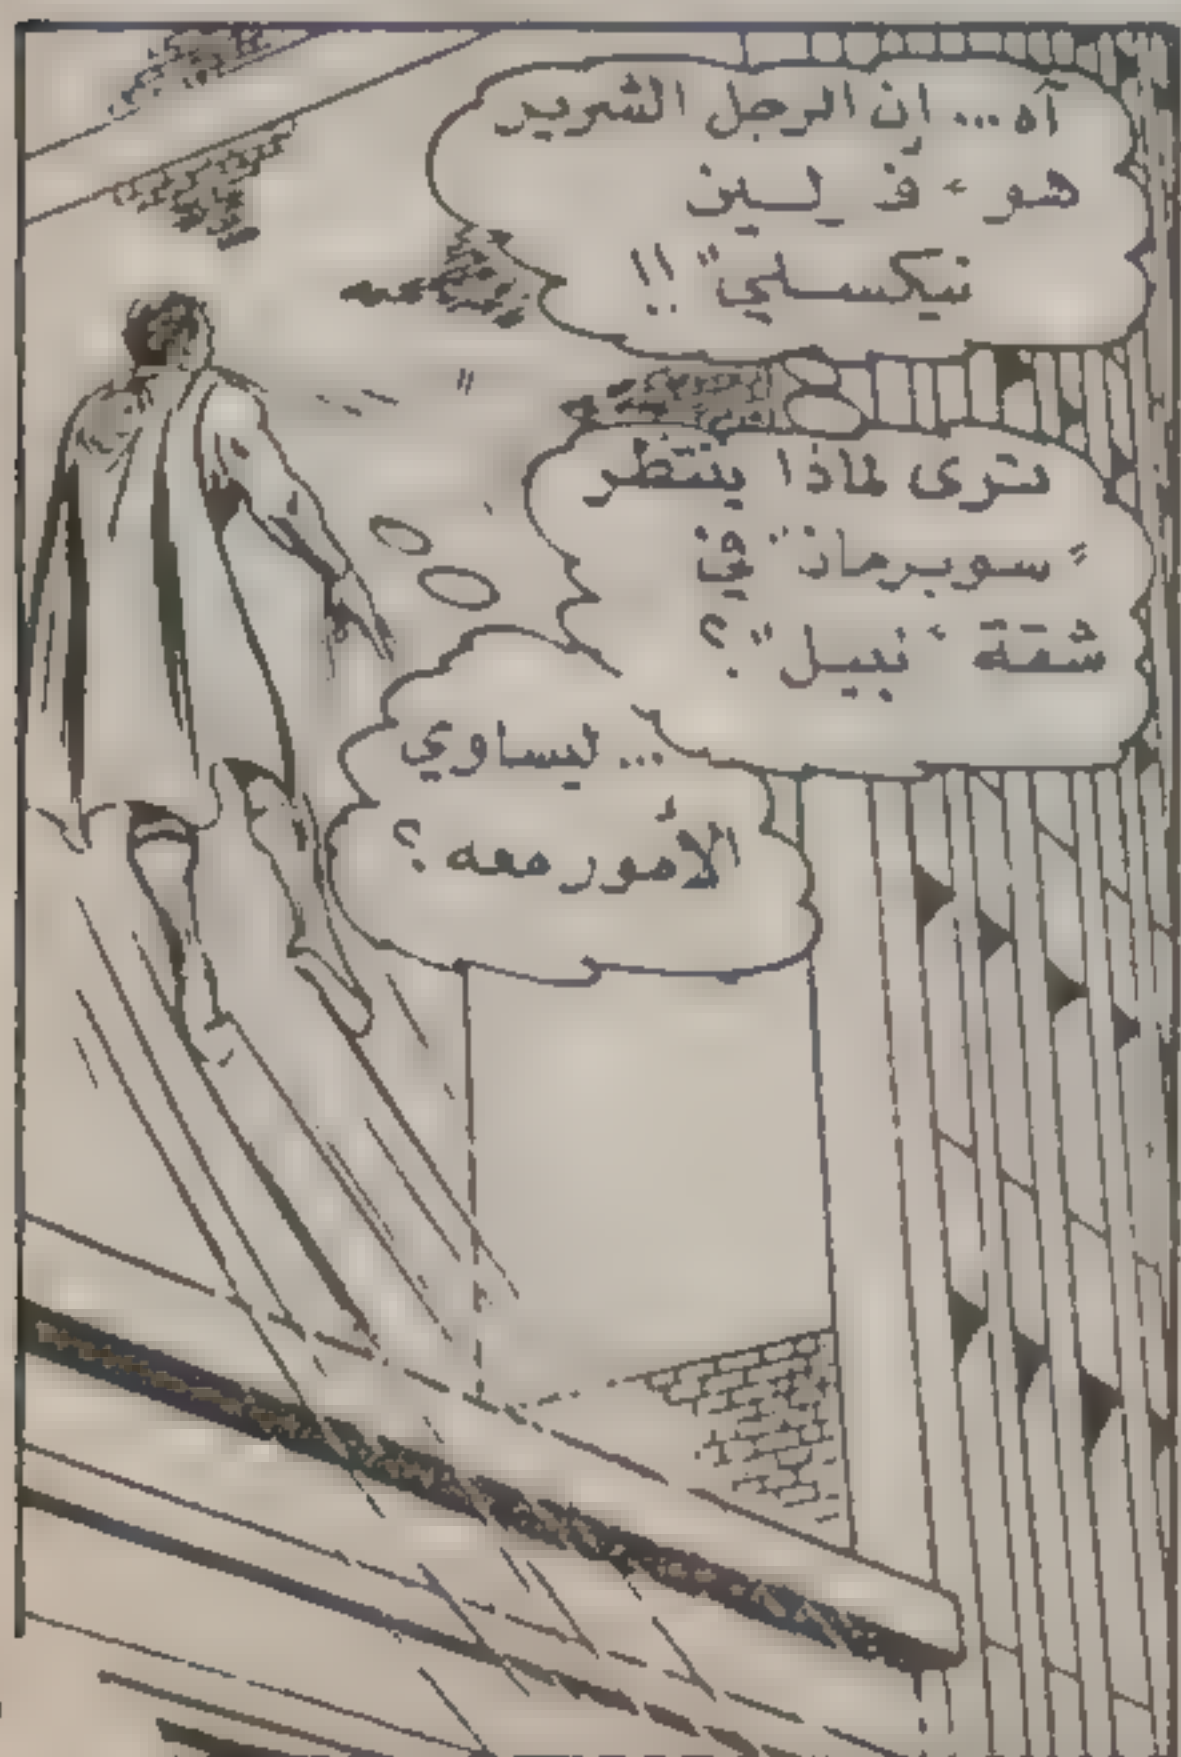 آه... إن الرجل الشرير
هو "ف لين
نيكسلي" !!
ترى لماذا ينتظر
"سوبرمان" في
شقة "نبيل"؟
... ليساوي
الأمور معه؟